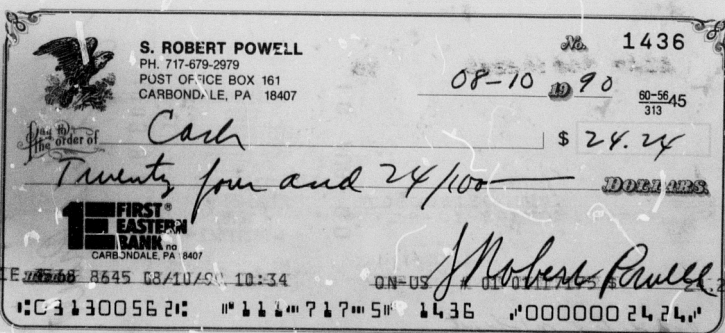 S. ROBERT POWELL
PH. 717-679-2979
POST OFFICE BOX 161
CARBONDALE, PA 18407
No. 1436
08-10 19 90
60-5645
313
Pay to the order of Cash $ 24.24
Twenty four and 24/100 DOLLARS
1 FIRST®
EASTERN
BANK na
CARBONDALE, PA 18407
S Robert Powell
8645 08/10/90 10:34 ON-US
⑆031300562⑆ ⑈111⑉717⑉5⑈ 1436 ⑈0000002424⑈